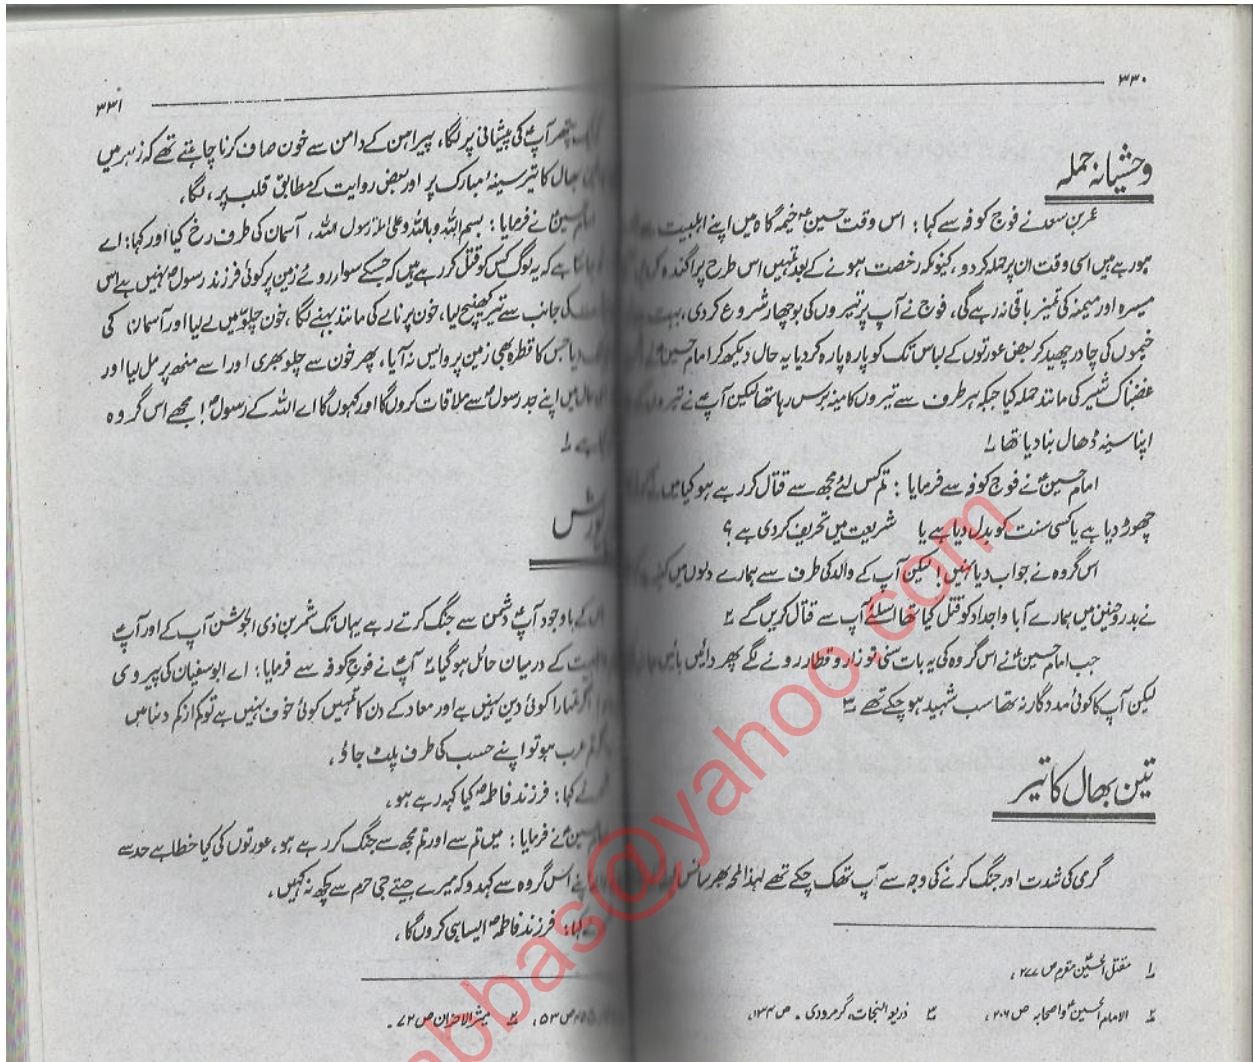 ۳۳۰
وحشیانہ حملہ
عمر بن سعد نے فوج کوفہ سے کہا: اس وقت حسینؑ خیمہ گاہ میں اپنے اہلبیت سے
ہو رہے ہیں اسی وقت ان پر حملہ کر دو، کیونکہ رخصت ہونے کے بعد تمہیں اس طرح پراگندہ کر
میسرہ اور میمنہ کی تمیز باقی نہ رہے گی، فوج نے آپ پر تیروں کی بوچھار شروع کر دی، بہت
خیموں کی چادر چھید کر بعض عورتوں کے لباس تک کو پارہ پارہ کر دیا یہ حال دیکھ کر امام حسینؑ نے
غضبناک شیر کی مانند حملہ کیا جبکہ ہر طرف سے تیروں کا مینہ برس رہا تھا لیکن آپؑ نے تیروں
اپنا سینہ ڈھال بنا دیا تھا ۱
امام حسینؑ نے فوج کوفہ سے فرمایا: تم کس لئے مجھ سے قتال کر رہے ہو کیا میں نے
چھوڑ دیا ہے یا کسی سنت کو بدل دیا ہے یا شریعت میں تحریف کر دی ہے؟
اس گروہ نے جواب دیا نہیں! لیکن آپ کے والد کی طرف سے ہمارے دلوں میں
نے بدر و حنین میں ہمارے آبا و اجداد کو قتل کیا تھا اسلئے آپ سے قتال کریں گے ۲
جب امام حسینؑ نے اس گروہ کی یہ بات سنی تو زار و قطار رونے لگے پھر دائیں بائیں
لیکن آپ کا کوئی مددگار نہ تھا سب شہید ہو چکے تھے ۳
تین بھال کا تیر
گرمی کی شدت اور جنگ کرنے کی وجہ سے آپ تھک چکے تھے لہذا لمحہ بھر سانس
۱ مقتل الحسینؑ مقرم ص ۲۷۷،
۲ الامام الحسینؑ و اصحابہ ص ۳۰۶، ۳ ذریعہ النجات، گرمرودی۔ ص ۱۳۴،
۳۳۱
پتھر آپؑ کی پیشانی پر لگا، پیراہن کے دامن سے خون صاف کرنا چاہتے تھے کہ زہر میں
بھال کا تیر سینۂ مبارک پر اور بعض روایت کے مطابق قلب پر، لگا،
امام حسینؑ نے فرمایا: بسم اللہ و باللہ و علیٰ ملۃ رسول اللہ، آسمان کی طرف رخ کیا اور کہا: اے
جانتا ہے کہ یہ لوگ کس کو قتل کر رہے ہیں کہ جسکے سوا روئے زمین پر کوئی فرزند رسولؐ نہیں ہے اس
کی جانب سے تیر کھینچ لیا، خون پرنالے کی مانند بہنے لگا، خون چلو میں لے لیا اور آسمان کی
دیا جس کا قطرہ بھی زمین پر واپس نہ آیا، پھر خون سے چلو بھری اور اسے منھ پر مل لیا اور
حال میں اپنے جد رسولؐ سے ملاقات کروں گا اور کہوں گا اے اللہ کے رسولؐ! مجھے اس گروہ
ہے ۱
یورش
اس کے باوجود آپؑ دشمن سے جنگ کرتے رہے یہاں تک شمر بن ذی الجوشن آپ کے اور آپؑ
کے درمیان حائل ہو گیا ۲ آپؑ نے فوج کوفہ سے فرمایا: اے ابوسفیان کی پیروی
اگر تمہارا کوئی دین نہیں ہے اور معاد کے دن کا تمہیں کوئی خوف نہیں ہے تو کم از کم دنیا میں
عرب ہو تو اپنے حسب کی طرف پلٹ جاؤ،
نے کہا: فرزند فاطمہؐ کیا کہہ رہے ہو،
امام حسینؑ نے فرمایا: میں تم سے اور تم مجھ سے جنگ کر رہے ہو، عورتوں کی کیا خطا ہے حد سے
اپنے اس گروہ سے کہدو کہ میرے جیتے جی حرم سے کچھ نہ کہیں،
نے کہا: فرزند فاطمہؐ ایسا ہی کروں گا،
ص ۵۳، ۲ مثیر الاحزان ص ۷۲۔
abbas@yahoo.com